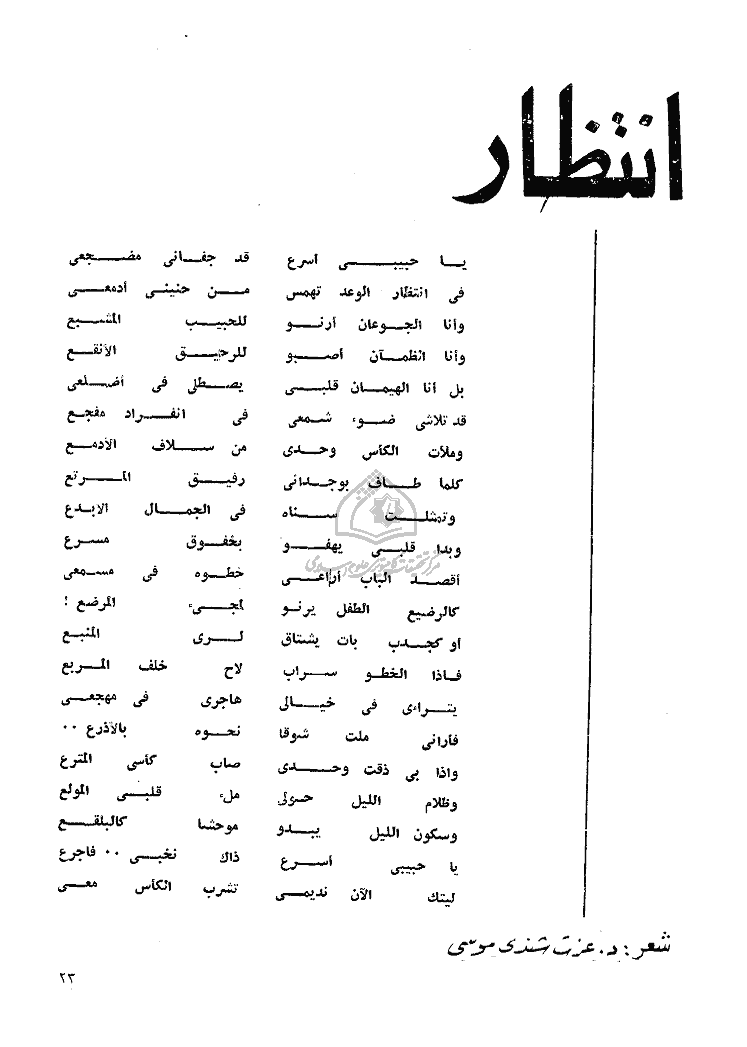 انتظار
يا حبيبى اسرع قد جفانى مضجعى
فى انتظار الوعد تهمس من حنينى أدمعى
وأنا الجوعان أرنو للحبيب المشبع
وأنا الظمآن أصبو للرحيق الأنقع
بل أنا الهيمان قلبى يصطلى فى أضلعى
قد تلاشى ضوء شمعى فى انفراد مفجع
وملأت الكأس وحدى من سلاف الأدمع
كلما طاف بوجدانى رفيق المرتع
وتمثلت سناه فى الجمال الابدع
وبدا قلبى يهفو بخفوق مسرع
أقصد الباب أراعى خطوه فى مسمعى
كالرضيع الطفل يرنو لمجىء المرضع !
او كجدب بات يشتاق لرى المنبع
فاذا الخطو سراب لاح خلف المربع
يتراءى فى خيالى هاجرى فى مهجعى
فأرانى ملت شوقا نحوه بالأذرع ٠٠
واذا بى ذقت وحدى صاب كأسى المترع
وظلام الليل حولى ملء قلبى المولع
وسكون الليل يبدو موحشا كالبلقع
يا حبيبى أسرع ذاك نخبى ٠٠ فاجرع
ليتك الآن نديمى تشرب الكأس معى
شعر : د. عزت شندى موسى
٢٣